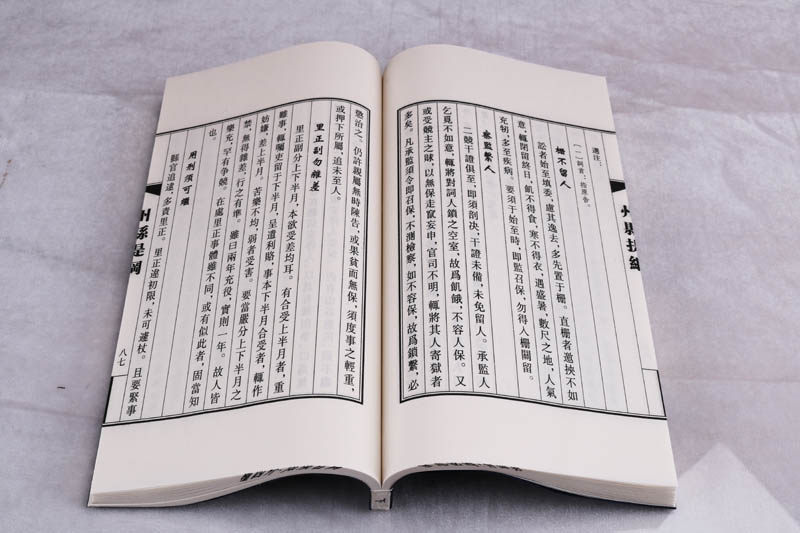 州縣提綱
選注：
〔一〕詞首：指原告。
柵不留人
訟者始至填委，慮其逸去，多先置于柵。直柵者邀挾不如
意，輒閉留終日，飢不得食，寒不得衣，遇盛暑，數尺之地，人氣
充牣，多至疾病。要須于始至時，即監召保，勿得入柵關留。
審監繫人
二競干證俱至，即須剖決，干證未備，未免留人。承監人
乞覓不如意，輒將對詞人鎖之空室，故爲飢餓，不容人保。又
或受競主之賕，以無保走竄妄申，官司不明，輒將其人寄獄者
多矣。凡承監須令即召保，不測檢察，如不容保，故爲鎖繫，必
懲治之。仍許親屬無時陳告，或果貧而無保，須度事之輕重，
或押下所屬，追未至人。
里正副勿雜差
里正副分上下半月，本欲受差均耳。有合受上半月者，重
難事，輒囑吏留于下半月，呈遣利賂，事本下半月合受者，輒作
妨嫌，差上半月。苦樂不均，弱者受害。要當嚴分上下半月之
禁，無得雜差，行之有準。雖曰兩年充役，實則一年。故人皆
樂充，罕有爭競。在處里正事體雖不同，或有似此者，固當知
也。
用刑須可繼
縣官追逮，多責里正。里正違初限，未可遽杖。且要緊事
州縣提綱
八七